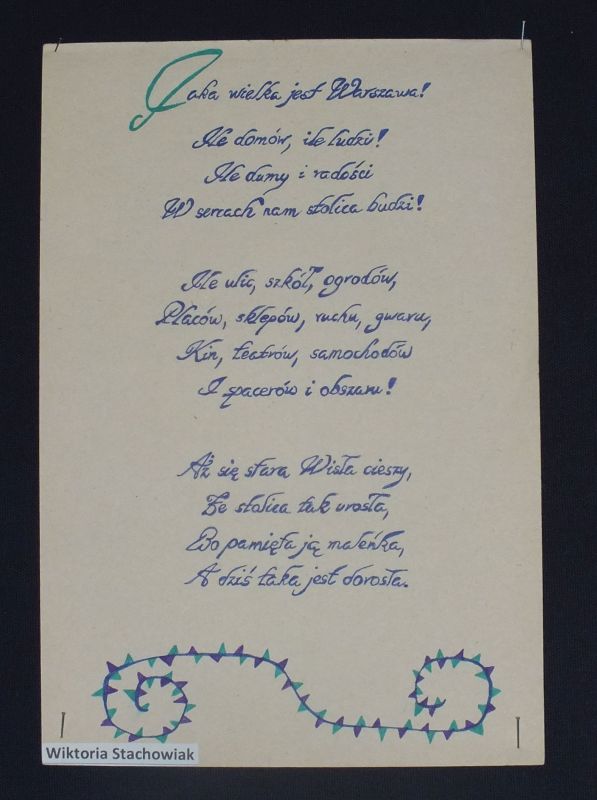 Jaka wielka jest Warszawa!
Ile domów, ile ludzi!
Ile dumy i radości
W sercach nam stolica budzi!
Ile ulic, szkół, ogrodów,
Placów, sklepów, ruchu, gwaru,
Kin, teatrów, samochodów
I spacerów i obszaru!
Aż się stara Wisła cieszy,
Że stolica tak urosła,
Bo pamięta ją maleńką,
A dziś taka jest dorosła.
Wiktoria Stachowiak